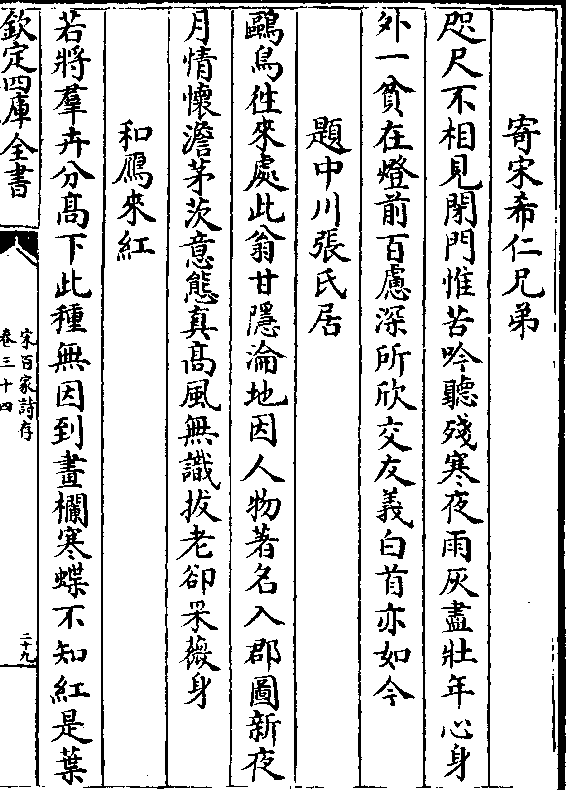 寄宋希仁兄弟
咫尺不相見閉門惟苦吟聽殘寒夜雨灰盡壯年心身
外一貧在燈前百慮深所欣交友義白首亦如今
題中川張氏居
鷗鳥徃來處此翁甘隱淪地因人物著名入郡圖新夜
月情懷澹茅茨意態真髙風無識拔老卻采薇身
和鴈來紅
若將羣卉分髙下此種無因到畫欄寒蝶不知紅是葉
欽定四庫全書
宋百家詩存
卷三十四
二十九